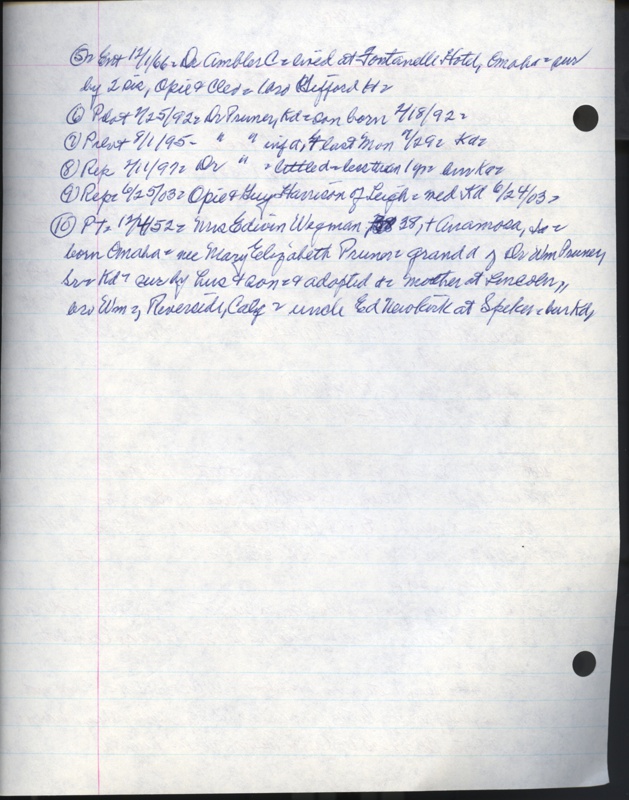 ⑤ Ent 12/1/66 = Dr Ambler C = lived at Fontanelle Hotel, Omaha = sur
by 2 sis, Opie & Cleo = bro Gifford H =
⑥ Pilot 2/25/92 = Dr Pruner, Kd = son born 2/18/92 =
⑦ Pilot 8/1/95 - " " inf d, + last Mon 7/29 = Kd =
⑧ Rep 2/11/97 = Dr " = little d = less than 1 yr = bur Kd =
⑨ Rep = 6/25/03 = Opie & Guy Harrison of Leigh = med Kd 6/24/03 =
⑩ PT = 12/4/52 = Mrs Edwin Wegman 38, + Anamosa, Ia =
born Omaha = nee Mary Elizabeth Pruner = grand d of Dr Wm Pruner,
Sr = Kd = sur by hus & son = & adopted d = mother at Lincoln,
bro Wm = Riverside, Calif = uncle Ed Newkirk at = bur Kd,